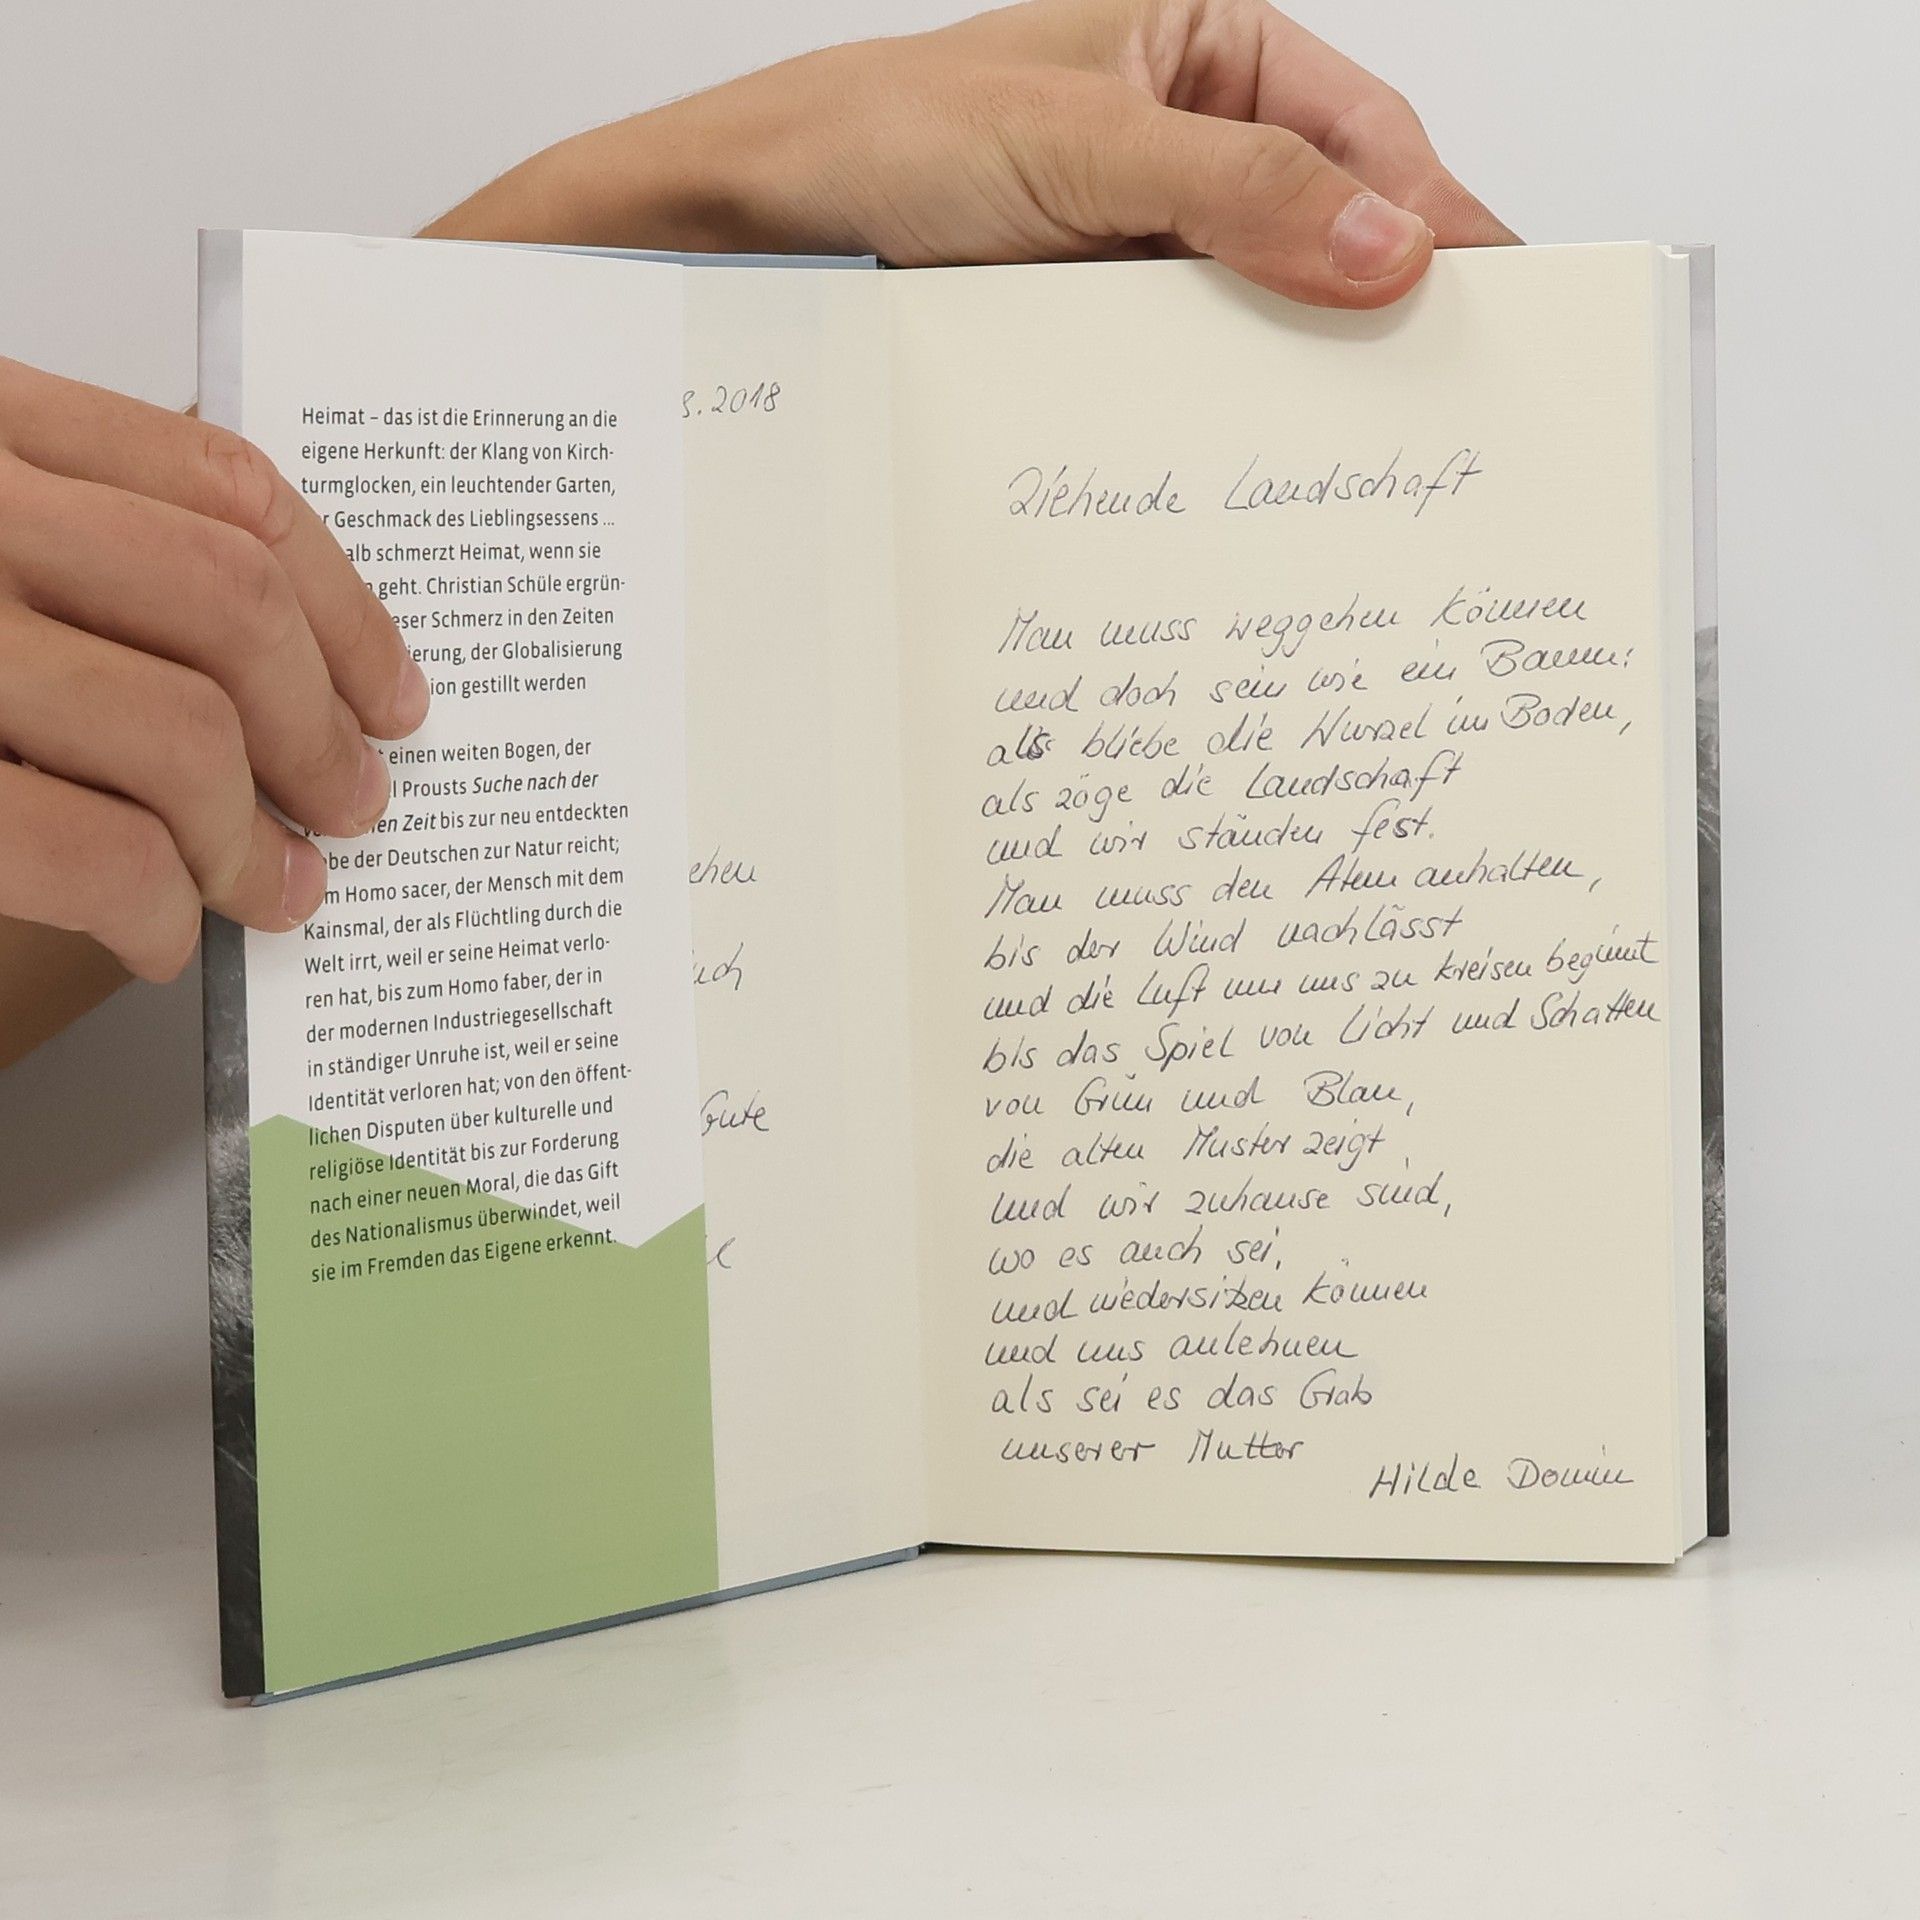 Heimat – das ist die Erinnerung an die
eigene Herkunft: der Klang von Kirch-
turmglocken, ein leuchtender Garten,
Geschmack des Lieblingsessens ...
schmerzt Heimat, wenn sie
geht. Christian Schüle ergrün-
Schmerz in den Zeiten
der Globalisierung
gestillt werden
einen weiten Bogen, der
Prousts Suche nach der
Zeit bis zur neu entdeckten
der Deutschen zur Natur reicht;
Homo sacer, der Mensch mit dem
Kainsmal, der als Flüchtling durch die
Welt irrt, weil er seine Heimat verlo-
ren hat, bis zum Homo faber, der in
der modernen Industriegesellschaft
in ständiger Unruhe ist, weil er seine
Identität verloren hat; von den öffent-
lichen Disputen über kulturelle und
religiöse Identität bis zur Forderung
nach einer neuen Moral, die das Gift
des Nationalismus überwindet, weil
sie im Fremden das Eigene erkennt.
.2018
Gute
Ziehende Landschaft
Man muss weggehen können
und doch sein wie ein Baum:
als bliebe die Wurzel im Boden,
als zöge die Landschaft
und wir ständen fest.
Man muss den Atem anhalten,
bis der Wind nachlässt
und die Luft um uns zu kreisen beginnt
bis das Spiel von Licht und Schatten
von Grün und Blau,
die alten Muster zeigt
und wir zuhause sind,
wo es auch sei,
und niedersitzen können
und uns anlehnen
als sei es das Grab
unserer Mutter
Hilde Domin